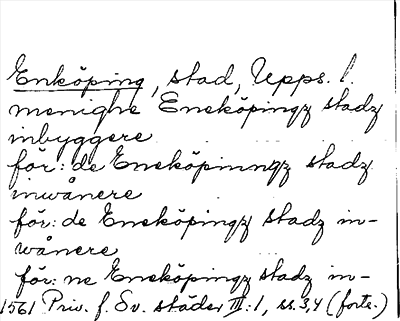 Enköping, stad, Upps. l.
menighe Eneköpingz stadz
inbyggere
för: de Eneköpinngz stadz
inwånere
för: de Eneköpingz stadz in-
wånere
för: ne Eneköpingz stadz in-
1561 Priv. f. Sv. städer III:1, ss. 3,4 (forts.)